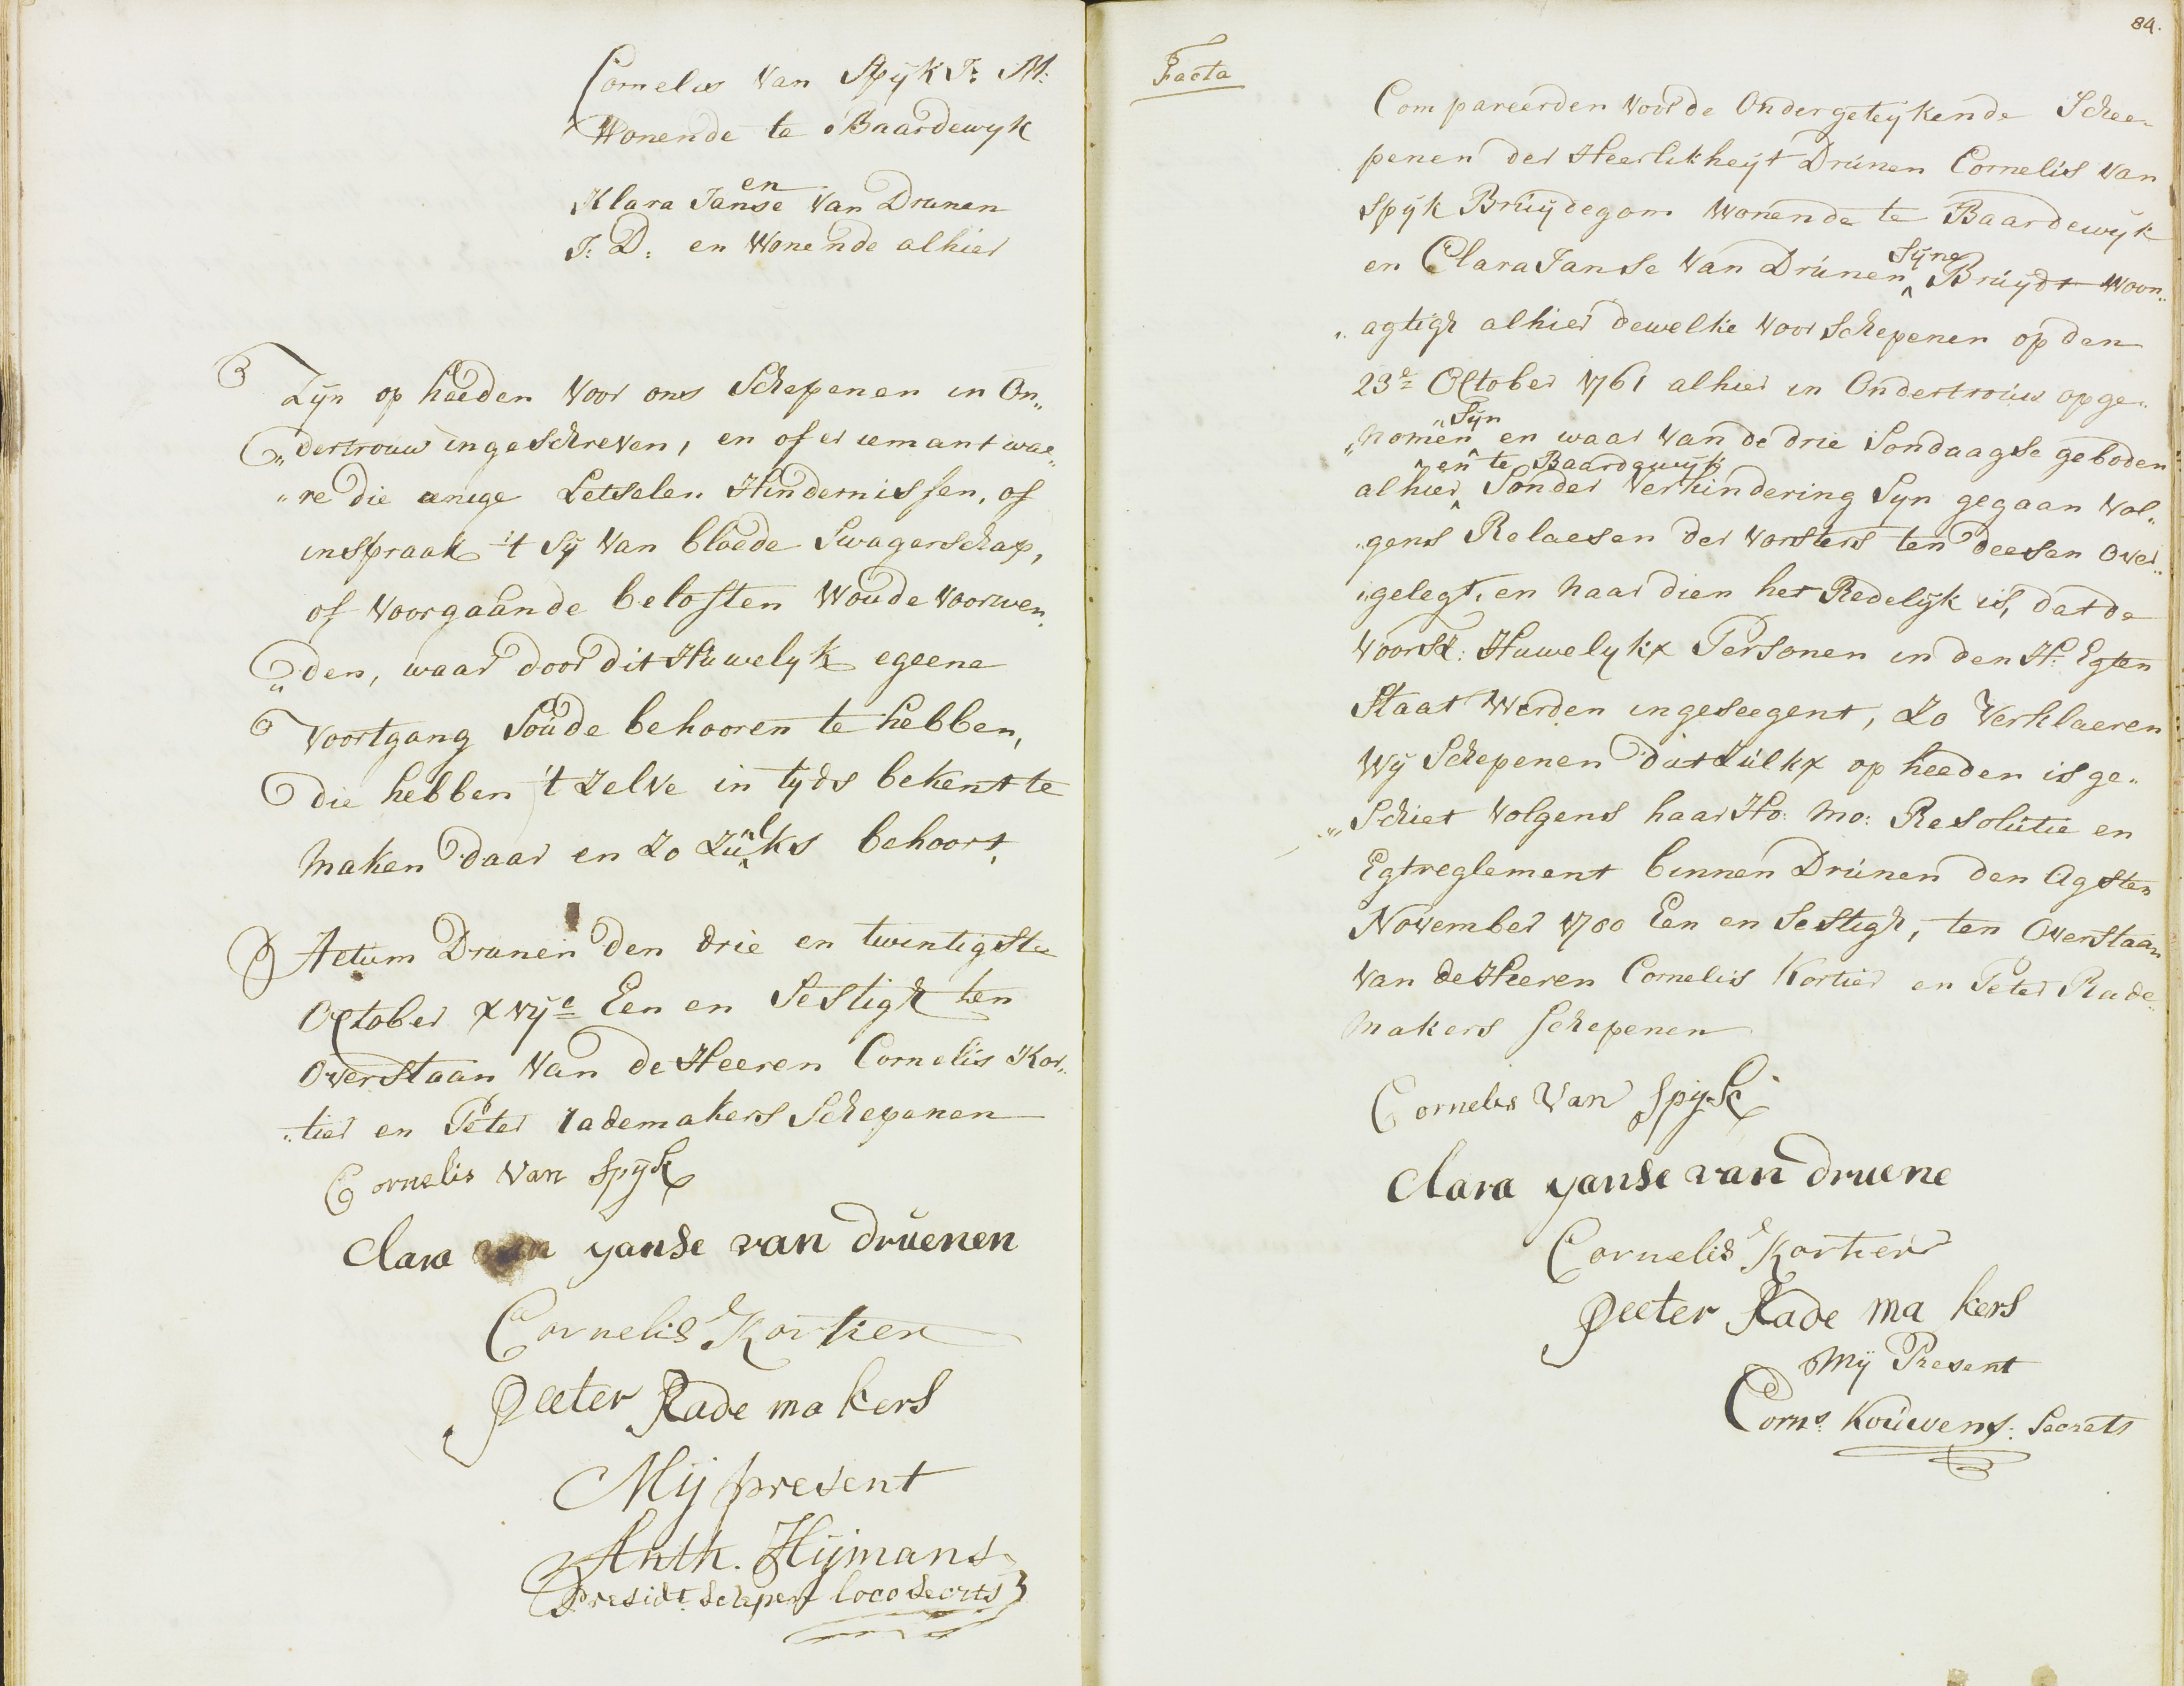 Cornelis Van Spÿk J: M:
Wonende te Baardewyk
en
Klara Janse Van Drunen
J: D: en Wonende alhier
Zÿn op heeden Voor ons Schepenen in On„
„dertrouw ingeschreven, en of er iemant wae„
„re die enige Letselen Hindernissen, of
inspraak 't Sÿ Van bloede Swagerschap,
of Voorgaande beloften Woude Voorwen„
„den, waar door dit Huwelyk egeene
Voortgang Soude behooren te hebben,
die hebben 't Zelve in tyds bekent te
Maken daar en Zo Zulks behoort.
Actum Drunen den drie en twintigste
October XVIJc Een en Sestigh ten
Overstaan Van de Heeren Cornelis Kor„
„tier en Peter Rademakers Schepenen
Cornelis Van Spÿk
Clara yanse van druenen
Cornelis Kortier
Peeter Rade makers
Mij present
Anth. Hijmans
Presidt Schepen loco Secrts
84.
Facta
Compareerden Voor de Ondergeteÿkende Schee„
penen der Heerlikheÿt Drunen Cornelis Van
Spÿk Bruÿdegom Wonende te Baardewÿk
en Clara Janse Van Drunen Sÿne Bruÿdt Woon„
„agtigh alhier dewelke Voor Schepenen op den
23e October 1761 alhier in Ondertrouw opge„
„nomen Sÿn en waar Van de drie Sondaagse geboden
alhier en te Baardewÿk Sonder Verhindering Syn gegaan Vol„
„gens Relaesen der Vorsters ten deesen Over„
„gelegt, en Naar dien het Redelÿk is, dat de
Voorsz: Huwelykx Personen in den H: Egten
Staat Werden ingeseegent, Zo Verklaeren
Wÿ Schepenen dat Zulkx op heeden is ge„
„Schiet Volgens haar Ho: Mo: Resolutie en
Egtreglement binnen Drunen den Agsten
November 1700 Een en Sestigh, ten Overstaan
Van de Heeren Cornelis Kortier en Peter Rade„
Makers Schepenen
Cornelis Van Spÿk
Clara yanse van druene
Cornelis Kortier
Peeter Rade ma kers
Mÿ Present
Corns: Kouwens: Secrets